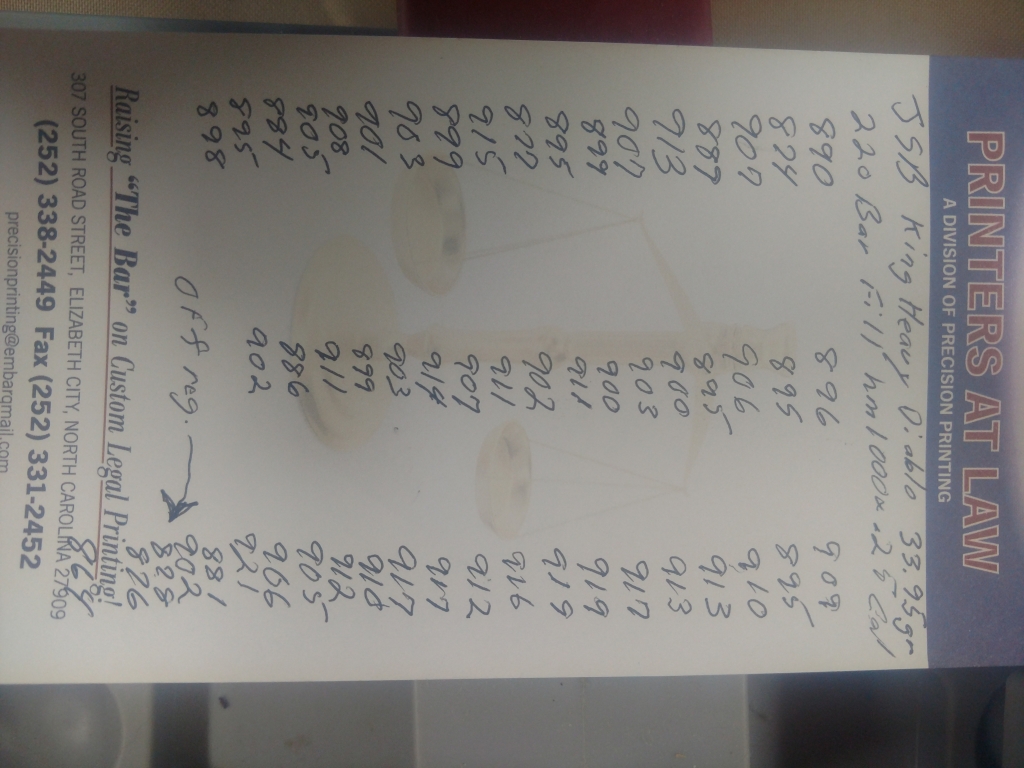 PRINTERS AT LAW
A DIVISION OF PRECISION PRINTING
JSB King Heavy Diablo 33.95gr
220 Bar Fill hm1000x .25 Cal
890 896 909
824 895 895
907 906 910
887 895 913
913 900 913
907 903 917
899 900 919
895 911 919
877 902 916
915 911 912
899 907 917
953 914 917
901 903 918
908 899 912
905 911 905
884 886 966
895 902 921
898 881
Off reg. 902
828
826
864
Raising "The Bar" on Custom Legal Printing!
307 SOUTH ROAD STREET, ELIZABETH CITY, NORTH CAROLINA 27909
(252) 338-2449 Fax (252) 331-2452
precisionprinting@embarqmail.com